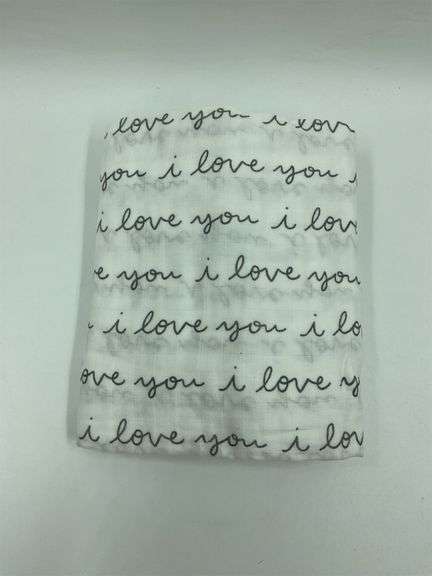 love you i lov
you i love you i
i love you i lov
e you i love you
i love you i lo
ove you i love y
i love you i lov